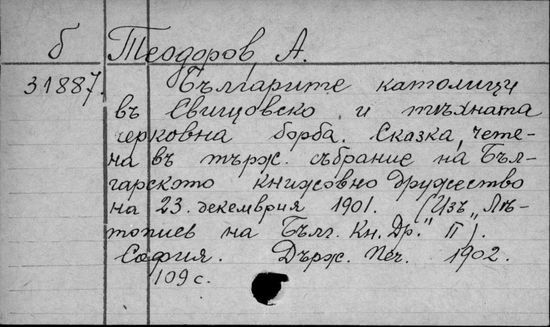 б Теодоров, А.
31887. Българите католици
въ Свищовско и тѣхната
черковна борба. Сказка, чете-
на въ търж. събрание на Бъл-
гарското книжовно дружество
на 23. декемврия 1901. (Изъ „Лѣ-
топись на Бълг. Кн. Др." II).
София. Държ. Печ. 1902.
109 с.